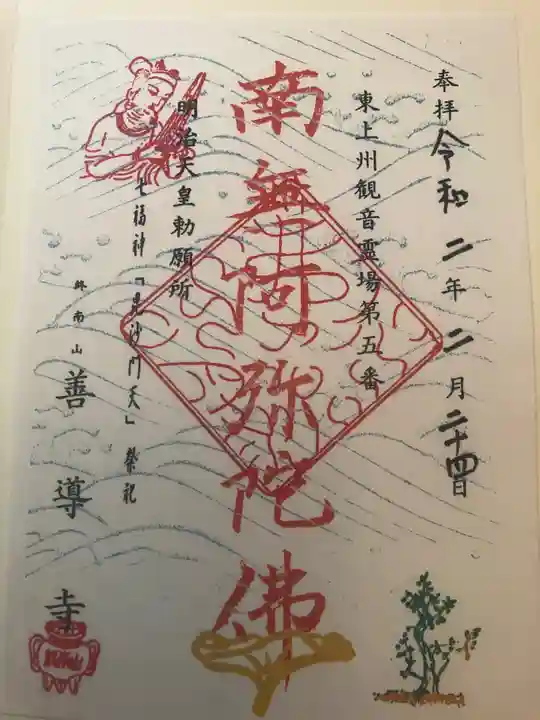 奉拝 令和 二年 二月 二十四日
東上州観音霊場第五番
南無阿弥陀佛
明治天皇勅願所
七福神「毘沙門天」祭祀
終南山 善導寺